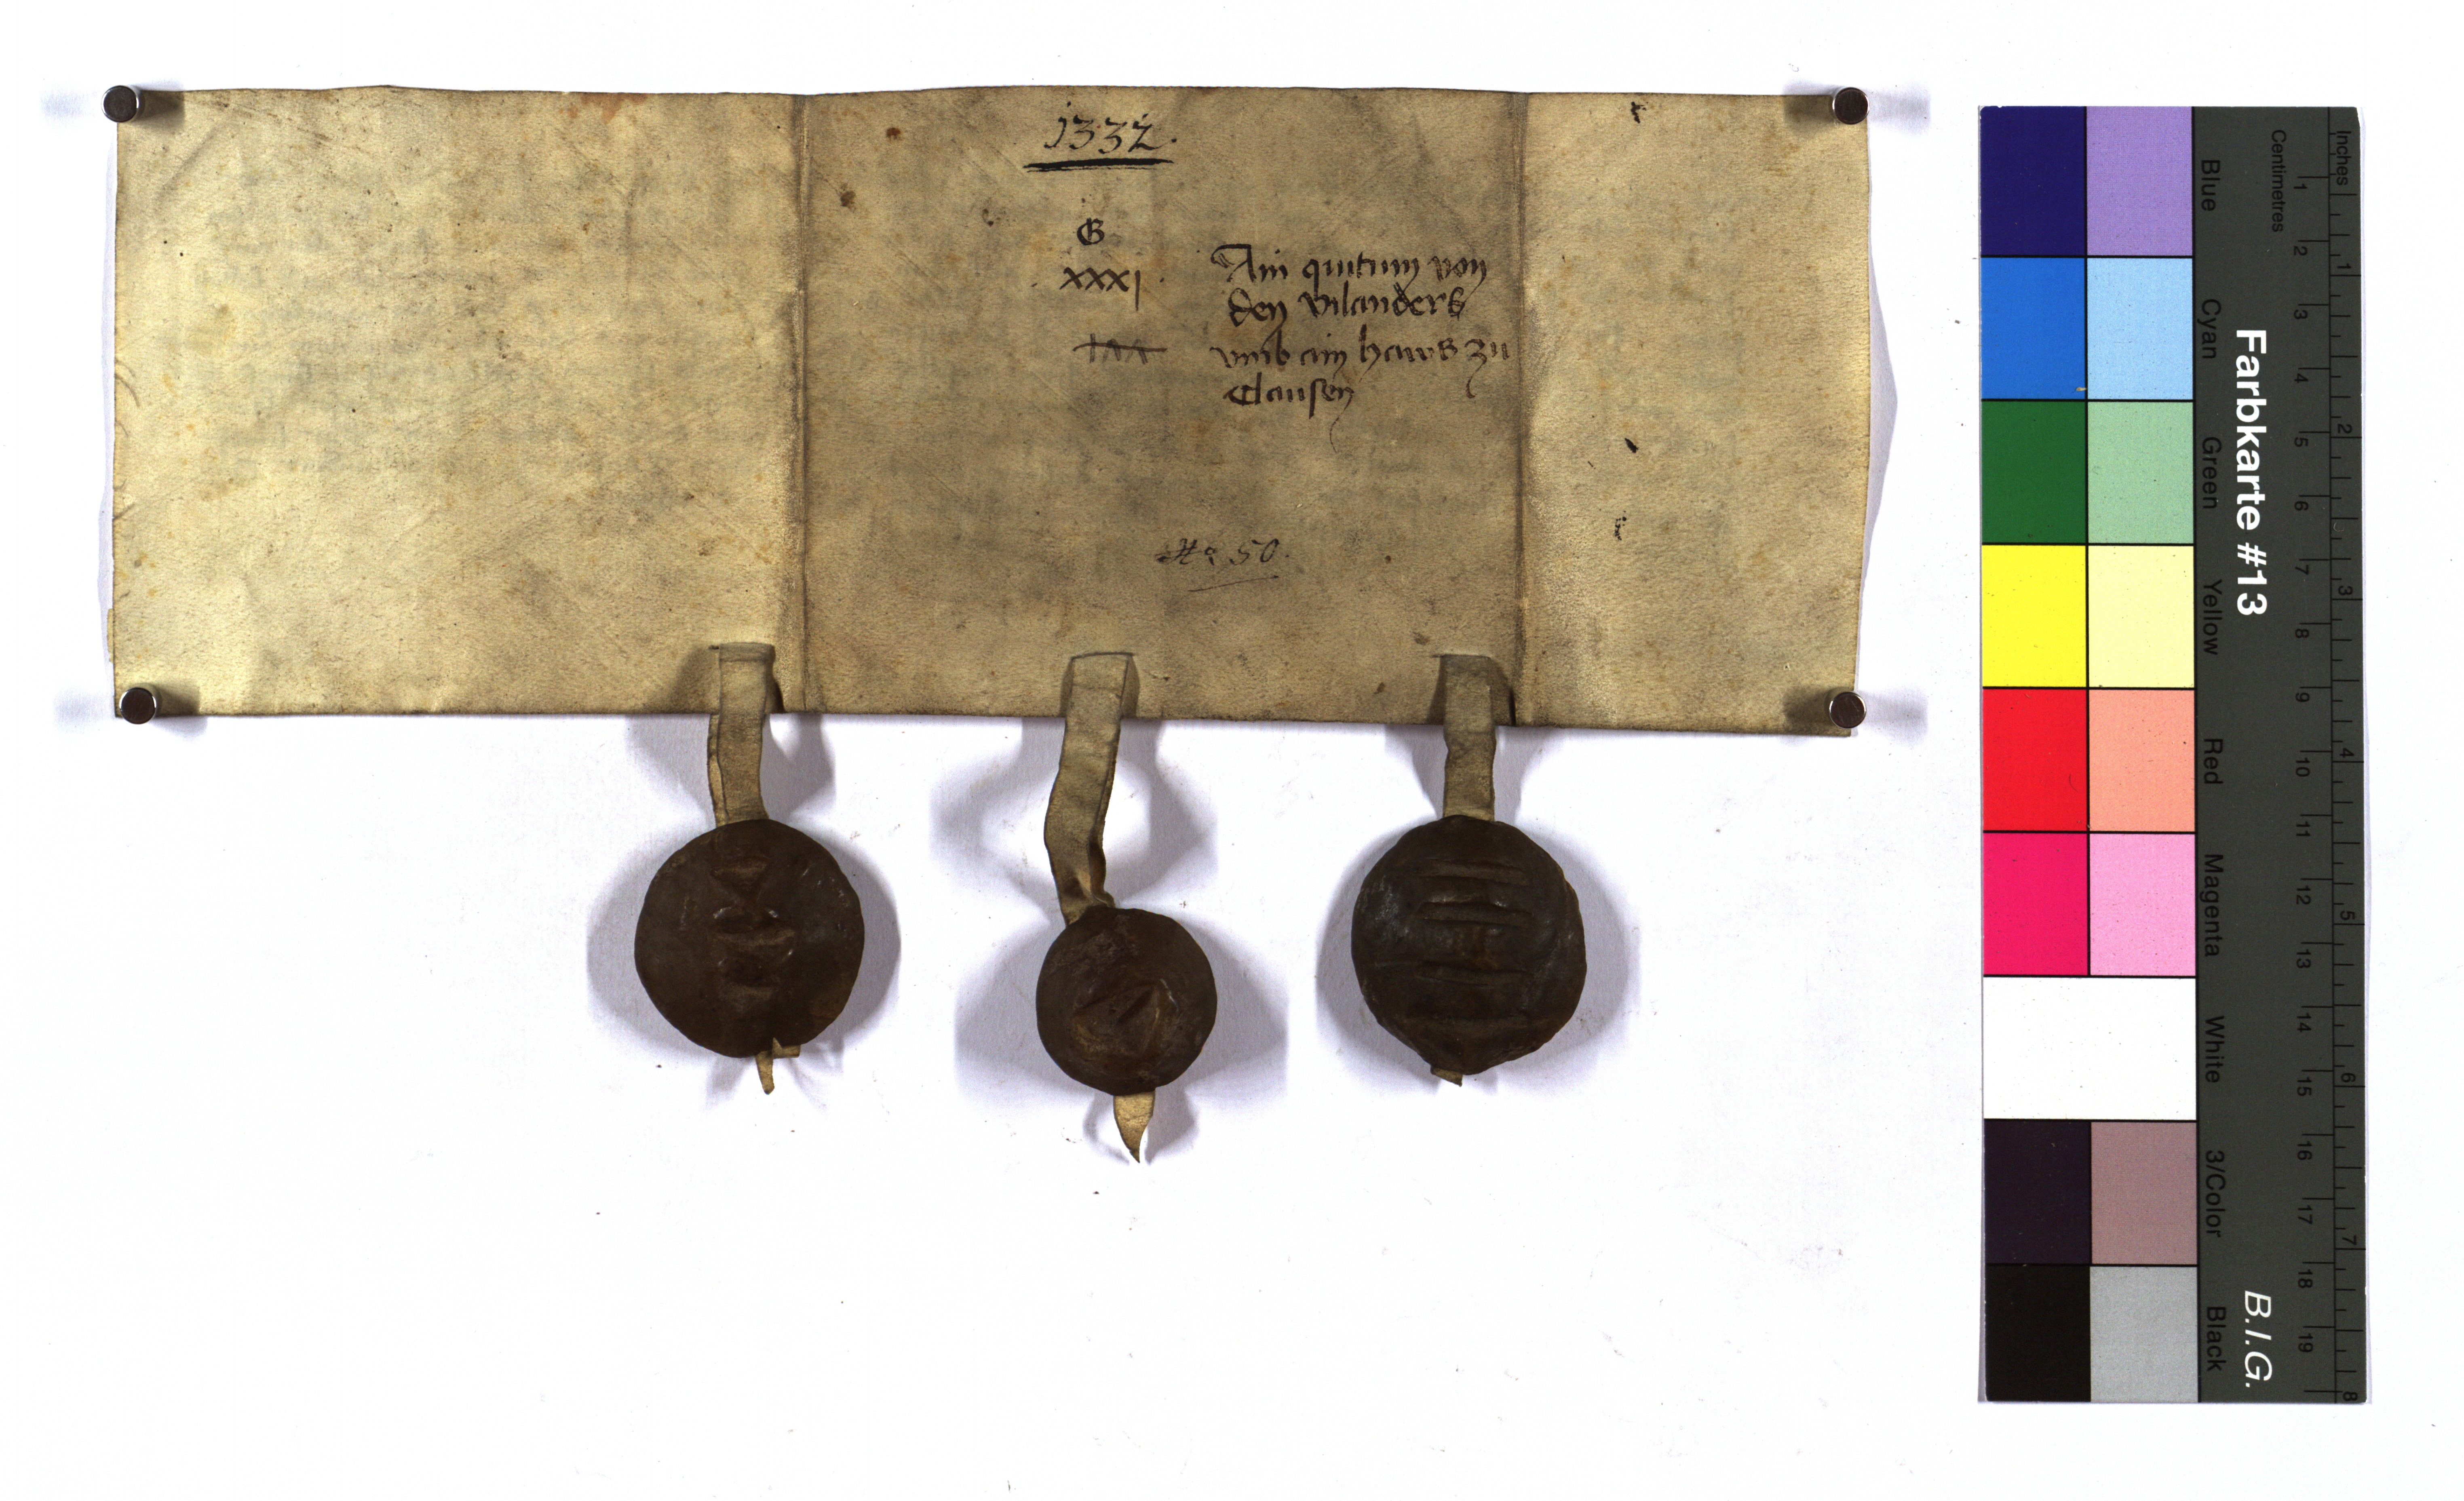 1332.
G
XXXI.
Ain quitum von
den vilanders
vmb ain haws zu
Clausen
No 50.
Inches
Centimetres
1 2 3 4 5 6 7 8 9 10 11 12 13 14 15 16 17 18 19
1 2 3 4 5 6 7 8
Farbkarte #13
B.I.G.
Blue
Cyan
Green
Yellow
Red
Magenta
White
3/Color
Black